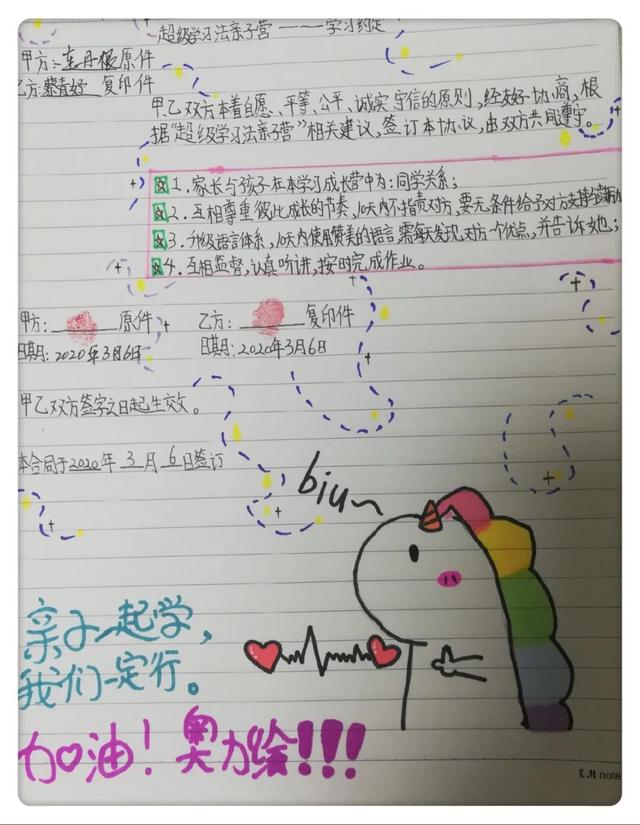 超级学习法亲子营———学习约定
甲方:原件
乙方:复印件
甲乙双方本着自愿、平等、公平、诚实守信的原则,经友好协商,根
据“超级学习法亲子营”相关建议,签订本协议,由双方共同遵守。
1.家长与孩子在本学习成长营中为:同学关系;
2.互相尊重彼此成长的节奏,10天内不指责对方,要无条件给予对方支持与鼓励
3.升级语言体系,10天内使用赞美的语言,需每天发现对方一个优点,并告诉她;
4.互相监督,认真听讲,按时完成作业。
甲方: 原件 乙方: 复印件
日期:2020年3月6日 日期:2020年3月6日
甲乙双方签字之日起生效。
本合同于2020年3月6日签订
biu~
亲子一起学,
我们一定行。
加油!奥力给!!!
T.M note